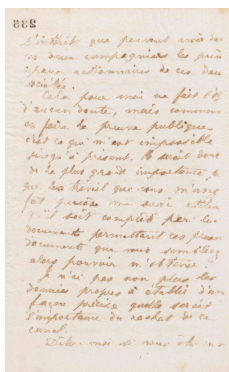 l'intérêt que peuvent avoir dans
ces deux compagnies les prin
cipaux actionnaires de ces deux
sociétés.
Cela pour moi ne fait l'obj
d'aucun doute, mais comment
en faire la preuve publique
c'est ce qui m'est impossible
jusqu'à présent. Il serait donc
de la plus grande importance, 
que le travail que vous m'avez
fait
qu'il soit complété par les
documents permettant ces
documents que vous
alors pouvoir m'obtenir.
Je n'ai pas non plus les
données propres à établir d'un
façon précise quelle serait
l'importance du rachat de ce
canal.
Dites moi si vous